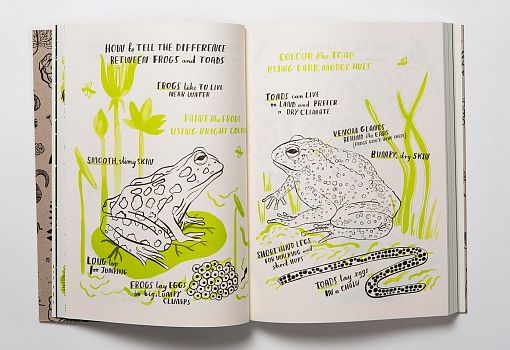 HOW to TELL THE DIFFERENCE
BETWEEN FROGS and TOADS
FROGS like TO LIVE
NEAR WATER
PAINT the FROGS
USING BRIGHT COLOU
SMOOTH, slimy SKIN
LONG legs
for JUMPING
FROGS lay EGGS
in big, LUMPY
CLUMPS
COLOUR the TOAD
USING DARK, MUDDY HUES
TOADS can LIVE
on LAND and PREFER
a DRY CLIMATE
VENOM GLANDS
BEHIND the EARS
(FROGS DON'T have THESE)
BUMPY, dry SKIN
SHORT HIND LEGS
FOR WALKING and
short HOPS
TOADS lay eggs
IN a CHAIN